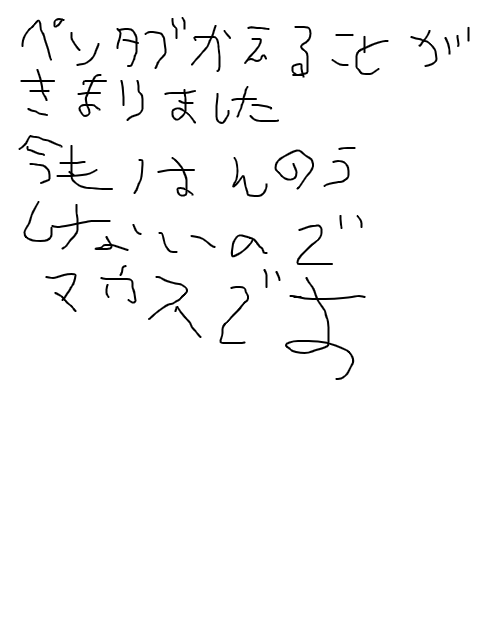 ペンタブかえることが
きまりました
今もはんのう
しないので
マウスです